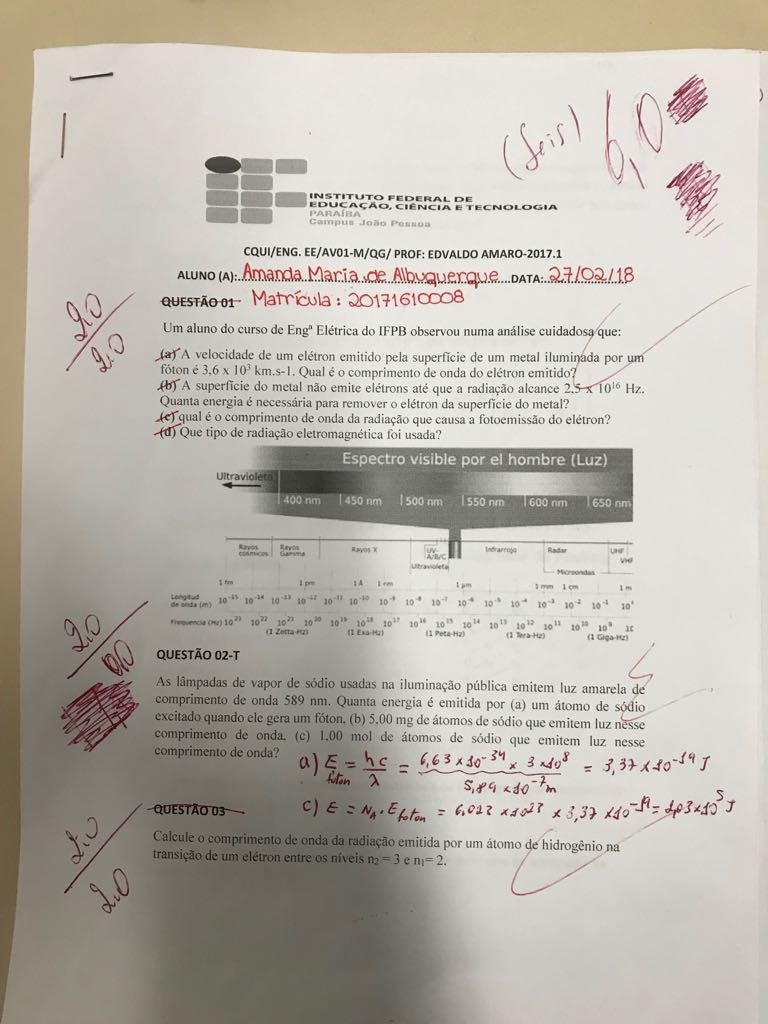 (seis) 6,0
INSTITUTO FEDERAL DE
EDUCAÇÃO, CIÊNCIA E TECNOLOGIA
PARAÍBA
Campus João Pessoa
CQUI/ENG. EE/AV01-M/QG/ PROF: EDVALDO AMARO-2017.1
ALUNO (A): Amanda Maria de Albuquerque DATA: 27/02/18
QUESTÃO 01 Matrícula: 20171610008
2,0
2.0
Um aluno do curso de Engª Elétrica do IFPB observou numa análise cuidadosa que:
(a) A velocidade de um elétron emitido pela superfície de um metal iluminada por um
fóton é 3,6 x 10³ km.s-1. Qual é o comprimento de onda do elétron emitido?
(b) A superfície do metal não emite elétrons até que a radiação alcance 2,5 x 10¹⁶ Hz.
Quanta energia é necessária para remover o elétron da superfície do metal?
(c) qual é o comprimento de onda da radiação que causa a fotoemissão do elétron?
(d) Que tipo de radiação eletromagnética foi usada?
Espectro visible por el hombre (Luz)
Ultravioleta
400 nm 450 nm 500 nm 550 nm 600 nm 650 nm
Rayos cósmicos Rayos Gamma Rayos X UV-A/B/C Ultravioleta Infrarrojo Radar Microondas UHF VHF
1 fm 1 pm 1 Å 1 nm 1 µm 1 mm 1 cm 1 m
Longitud de onda (m) 10⁻¹⁵ 10⁻¹⁴ 10⁻¹³ 10⁻¹² 10⁻¹¹ 10⁻¹⁰ 10⁻⁹ 10⁻⁸ 10⁻⁷ 10⁻⁶ 10⁻⁵ 10⁻⁴ 10⁻³ 10⁻² 10⁻¹
Frequencia (Hz) 10²³ 10²² 10²¹ 10²⁰ 10¹⁹ 10¹⁸ 10¹⁷ 10¹⁶ 10¹⁵ 10¹⁴ 10¹³ 10¹² 10¹¹ 10¹⁰ 10⁹
(1 Zetta-Hz) (1 Exa-Hz) (1 Peta-Hz) (1 Tera-Hz) (1 Giga-Hz)
2,0
2,0
QUESTÃO 02-T
As lâmpadas de vapor de sódio usadas na iluminação pública emitem luz amarela de
comprimento de onda 589 nm. Quanta energia é emitida por (a) um átomo de sódio
excitado quando ele gera um fóton, (b) 5,00 mg de átomos de sódio que emitem luz nesse
comprimento de onda, (c) 1,00 mol de átomos de sódio que emitem luz nesse
comprimento de onda?
a) E fóton = hc/λ = 6,63 x 10⁻³⁴ x 3 x 10⁸ / 5,89 x 10⁻⁷ m = 3,37 x 10⁻¹⁹ J
c) E = NA . E fóton = 6,023 x 10²³ x 3,37 x 10⁻¹⁹ = 2,03 x 10⁵ J
QUESTÃO 03
2,0
2.0
Calcule o comprimento de onda da radiação emitida por um átomo de hidrogênio na
transição de um elétron entre os níveis n₂ = 3 e n₁= 2.